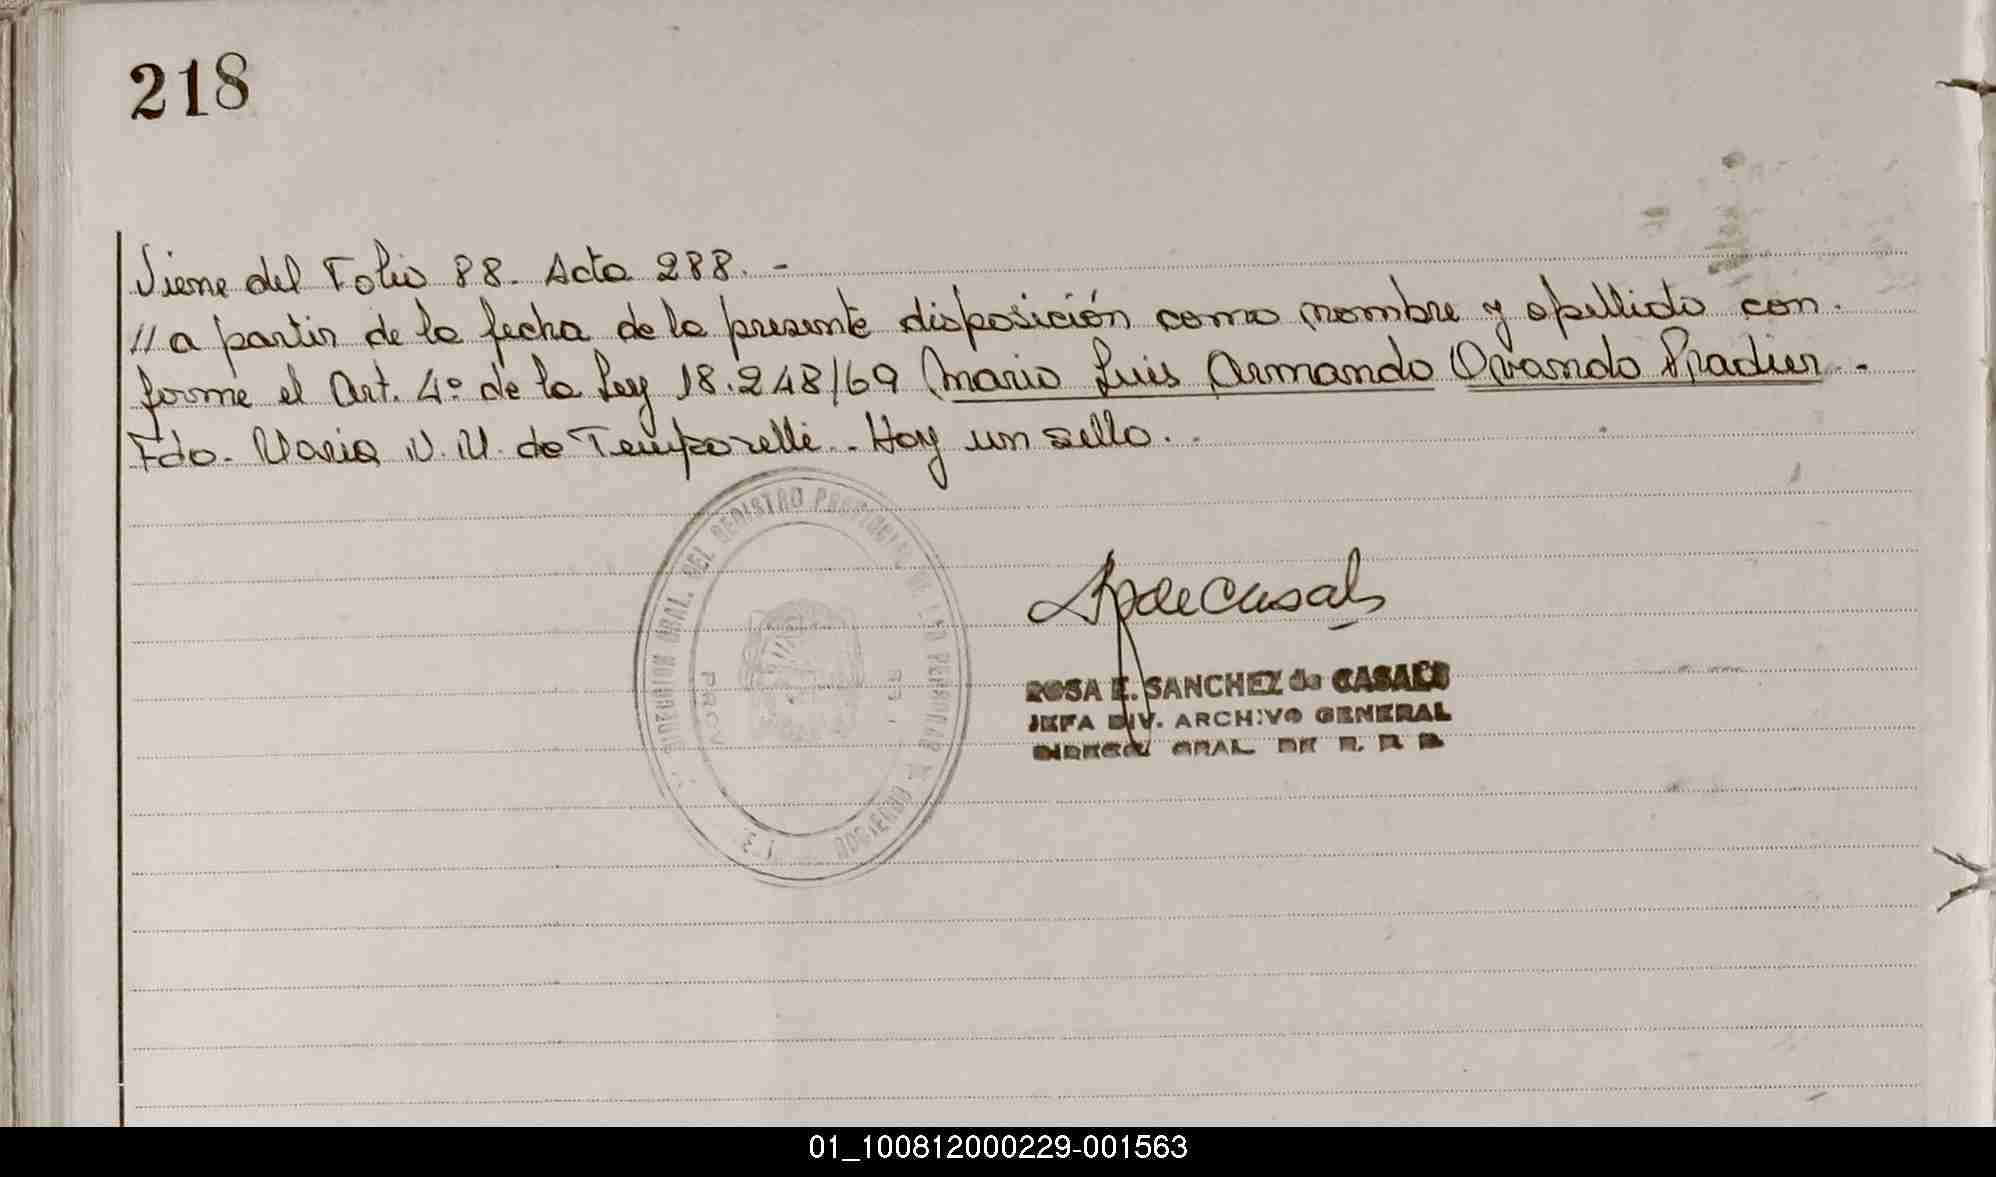 218
Viene del Folio 88. Acta 288. -
// a partir de la fecha de la presente disposición como nombre y apellido con-
forme el Art. 4º de la Ley 18.248/69 Mario Luis Armando Ovando Pradier -
Fdo. Maria N. M. de Temporelli. Hay un sello.
DIRECCION GRAL. DEL REGISTRO PROVINCIAL DE LAS PERSONAS
GOBIERNO
de Casals
ROSA E. SANCHEZ de CASALS
JEFA DIV. ARCHIVO GENERAL
GRAL DE R. P. P.
01_100812000229-001563